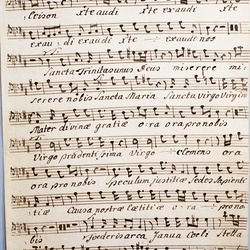 leison xte audi xte exaudi xte
exau, di exaudi xte exaudi nos
Sancta Trinitas unus Deus miserere mi
serere nobis Sancta Maria Sancta virgo Virgin
Mater divinæ gratiæ o ra ora pro nobis
Virgo prudentissima Virgo Clemens ora
ora pro nobis Speculum justitiæ Sedes Sapienti
tiæ Causa nostræ Lætitiæ o ra pro no
bis foederis arca Janua Cœli Stella